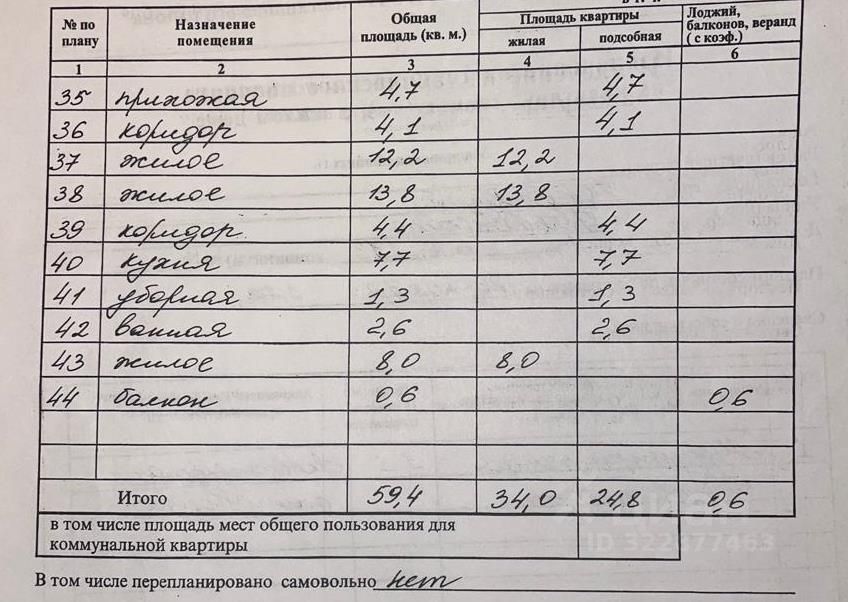 № по плану | Назначение помещения | Общая площадь (кв. м.) | Площадь квартиры | Лоджий, балконов, веранд ( с коэф.)
жилая | подсобная
1 | 2 | 3 | 4 | 5 | 6
35 | прихожая | 4,7 | | 4,7 |
36 | коридор | 4,1 | | 4,1 |
37 | жилое | 12,2 | 12,2 | |
38 | жилое | 13,8 | 13,8 | |
39 | коридор | 4,4 | | 4,4 |
40 | кухня | 7,7 | | 7,7 |
41 | уборная | 1,3 | | 1,3 |
42 | ванная | 2,6 | | 2,6 |
43 | жилое | 8,0 | 8,0 | |
44 | балкон | 0,6 | | | 0,6
Итого | 59,4 | 34,0 | 24,8 | 0,6
в том числе площадь мест общего пользования для
коммунальной квартиры
В том числе перепланировано самовольно нет